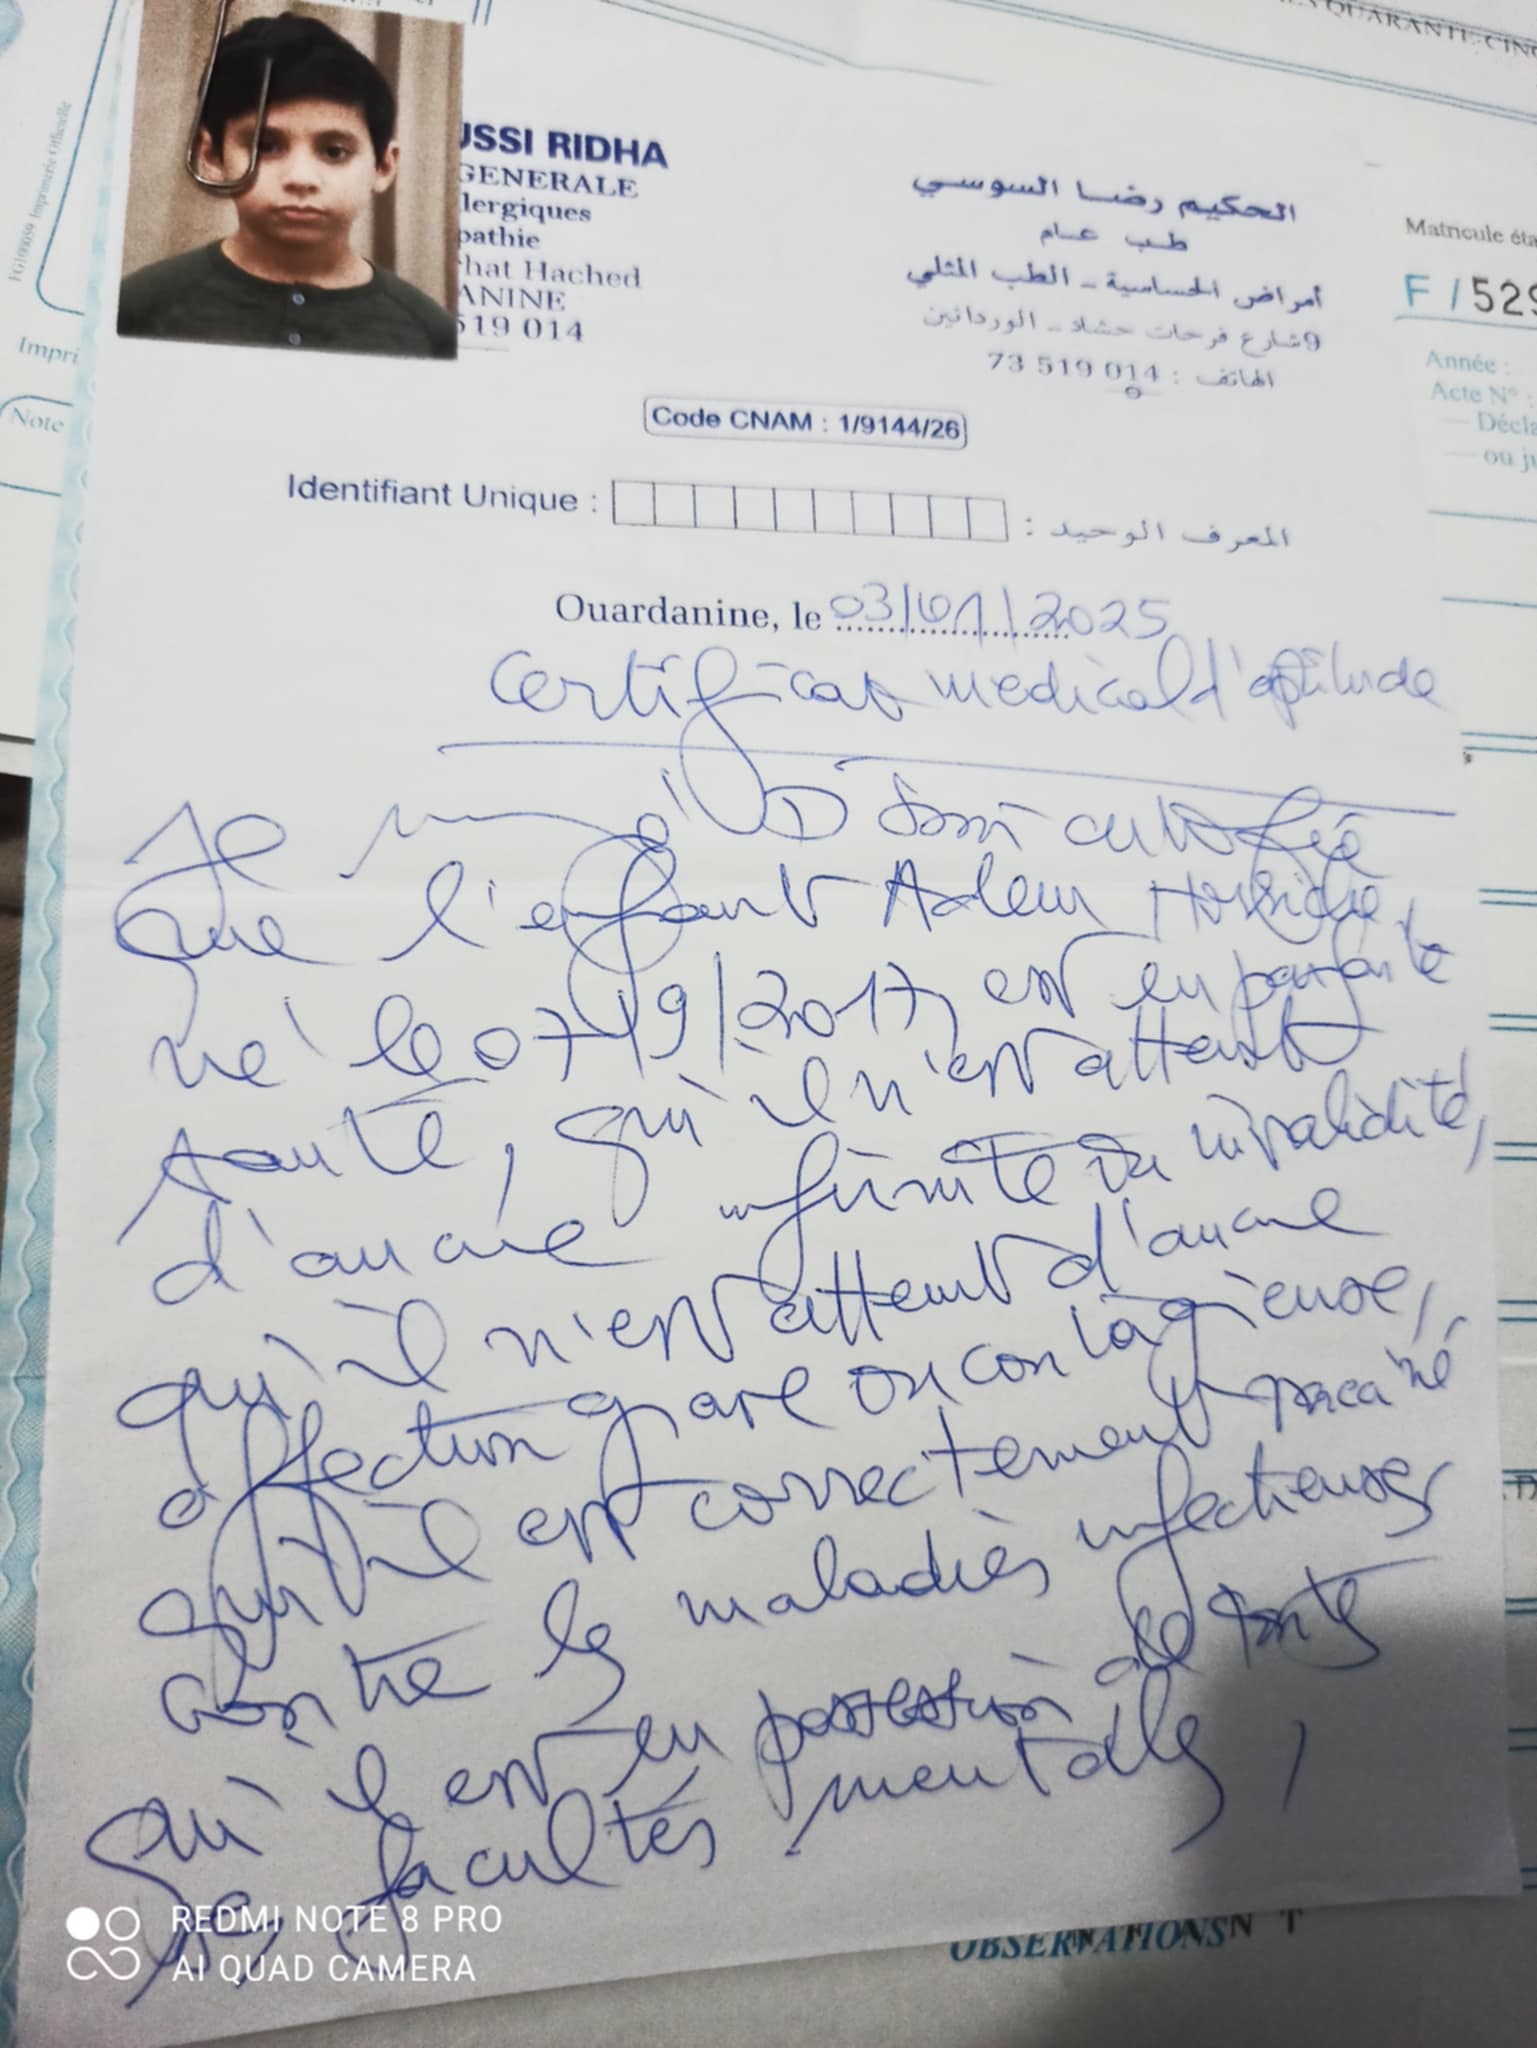 USSI RIDHA
GENERALE
lergiques
pathie
hat Hached
ANINE
519 014
الحكيم رضا السوسي
طب عام
أمراض الحساسية - الطب المثلي
9 شارع فرحات حشاد - الوردانين
الهاتف : 73 519 014
Code CNAM : 1/9144/26
Identifiant Unique :
المعرف الوحيد :
Ouardanine, le 03/01/2025
Certificat medical d'aptitude
Je
que l'enfant
né le 07/9/2017, est en parfaite
santé, qu'il n'est atteint
d'aucune infirmité ou invalidité,
qu'il n'est atteint d'aucune
affection grave ou contagieuse,
qu'il est correctement vacciné
contre les maladies infectieuses
qu'il est en possession de toutes
ses facultés mentales,
REDMI NOTE 8 PRO
AI QUAD CAMERA
OBSERVATIONS
N T
QUARANTE-CINQ
Matricule éta
F / 529
Année :
Acte N° :
— Décla
— ou ju
FG100059 Imprimerie Officielle
Impri
Note